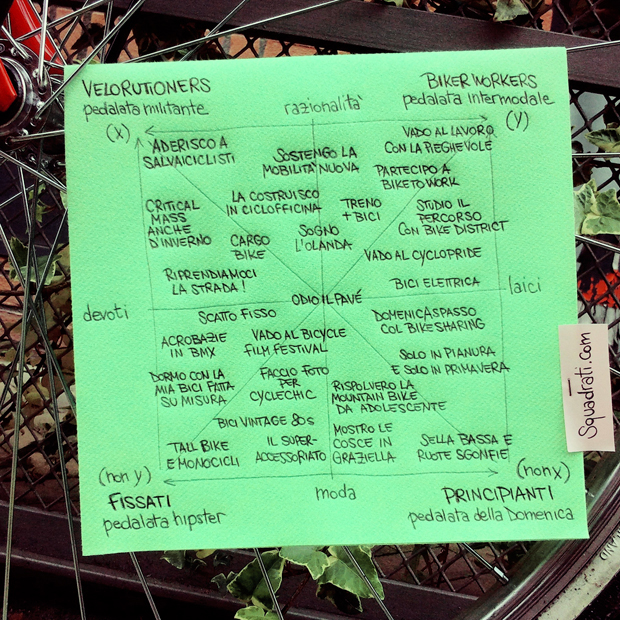 VELORUTIONERS
pedalata militante
(x)
razionalità
BIKER WORKERS
pedalata intermodale
(y)
ADERISCO A
SALVAICICLISTI
SOSTENGO LA
MOBILITÀ NUOVA
VADO AL LAVORO
CON LA PIEGHEVOLE
PARTECIPO A
BIKETOWORK
CRITICAL
MASS
ANCHE
D'INVERNO
LA COSTRUISCO
IN CICLOFFICINA
TRENO
+ BICI
STUDIO IL
PERCORSO
CON BIKE DISTRICT
CARGO
BIKE
SOGNO
L'OLANDA
VADO AL CYCLOPRIDE
RIPRENDIAMOCI
LA STRADA!
BICI ELETTRICA
devoti
ODIO IL PAVÉ
laici
SCATTO FISSO
DOMENICASPASSO
COL BIKESHARING
ACROBAZIE
IN BMX
VADO AL BICYCLE
FILM FESTIVAL
SOLO IN PIANURA
E SOLO IN PRIMAVERA
DORMO CON LA
MIA BICI FATTA
SU MISURA
FACCIO FOTO
PER
CYCLECHIC
RISPOLVERO LA
MOUNTAIN BIKE
DA ADOLESCENTE
BICI VINTAGE 80s
TALL BIKE
E MONOCICLI
IL SUPER-
ACCESSORIATO
MOSTRO LE
COSCE IN
GRAZIELLA
SELLA BASSA E
RUOTE SGONFIE
(non y)
FISSATI
pedalata hipster
moda
(non x)
PRINCIPIANTI
pedalata della Domenica
Squadrati.com